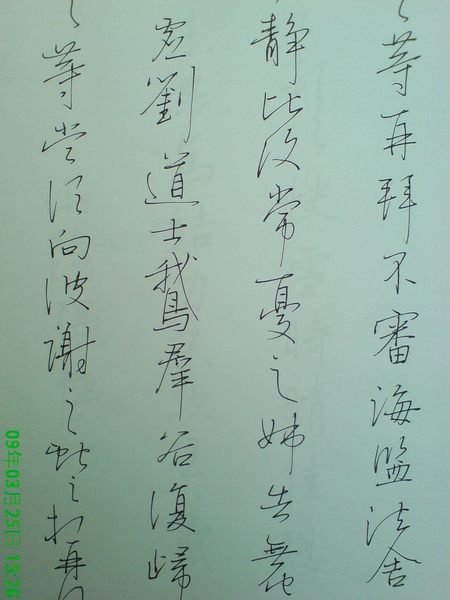 等再拜不審海鹽諸舍
靜比復常憂之姊告無它
虛劉道士鵝羣並復歸
等當須向彼謝之獻之等再
09年03月25日 15:26